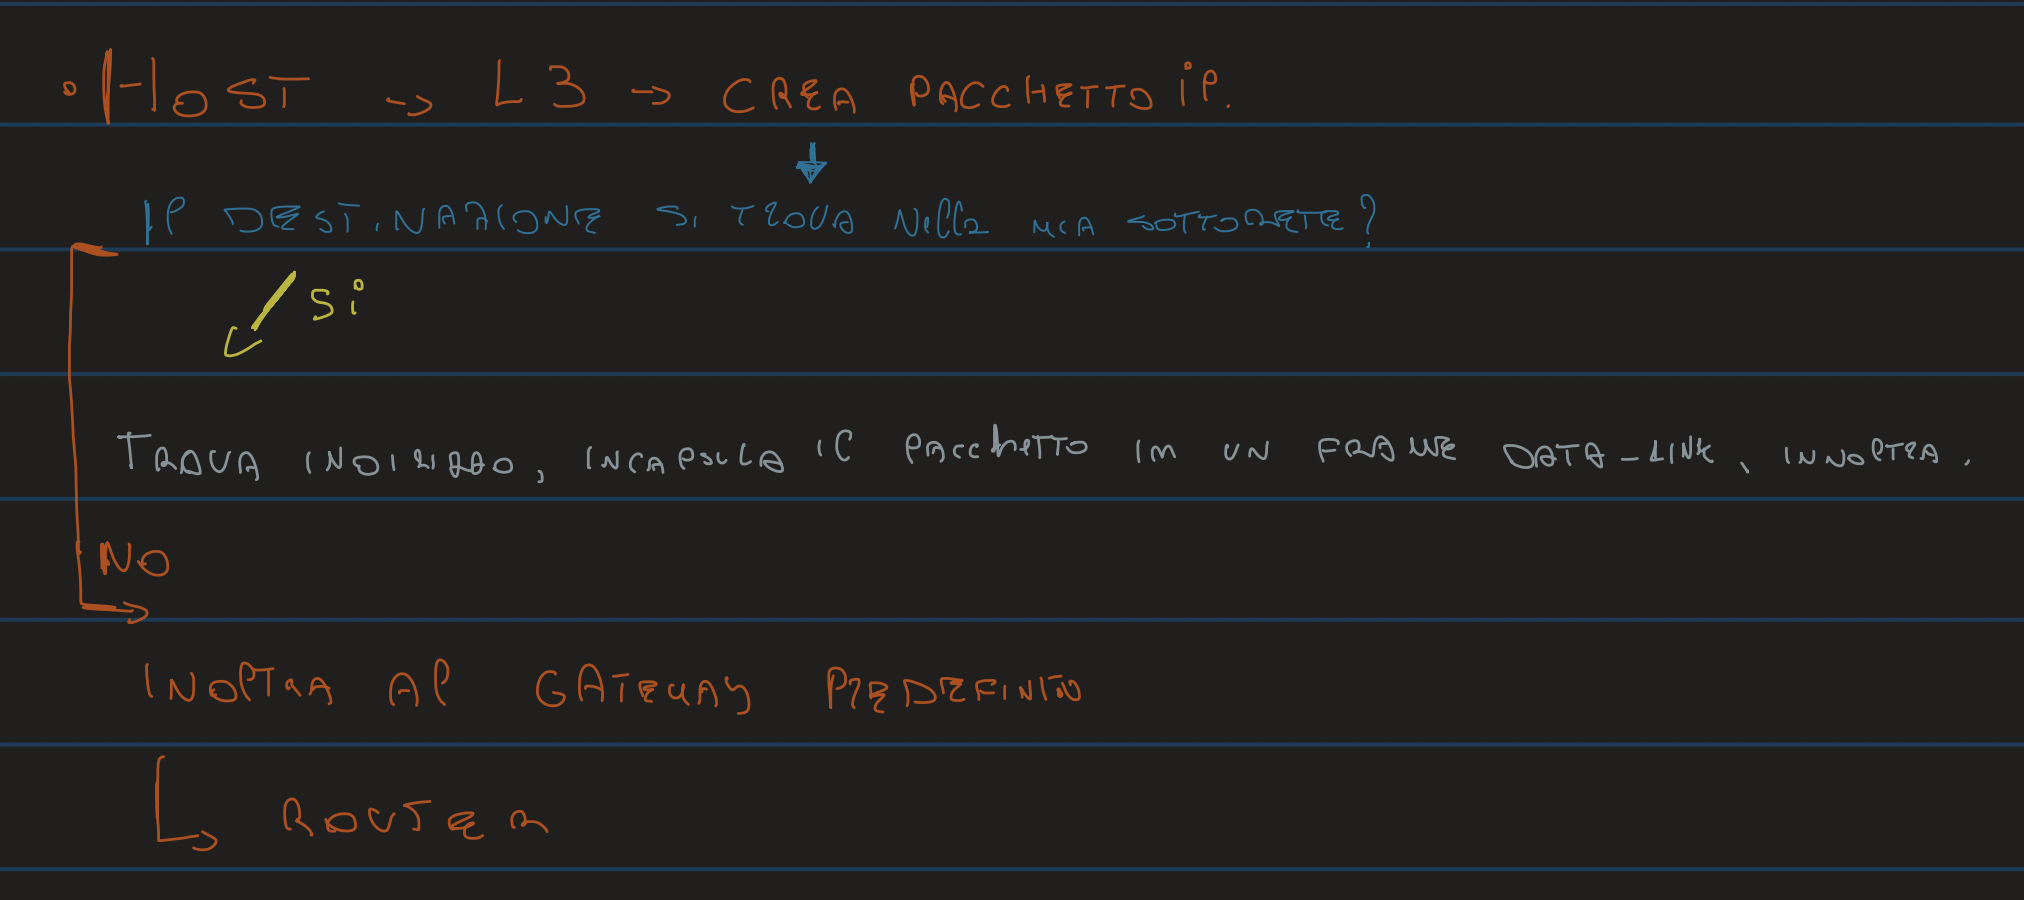 • HOST -> L3 -> CREA PACCHETTO IP.
IP DESTINAZIONE SI TROVA NELLA MIA SOTTORETE?
SI
TROVA INDIRIZZO, INCAPSULA IL PACCHETTO IN UN FRAME DATA-LINK, INNOLTRA.
NO
INOLTRA AL GATEWAY PREDEFINITO
ROUTER